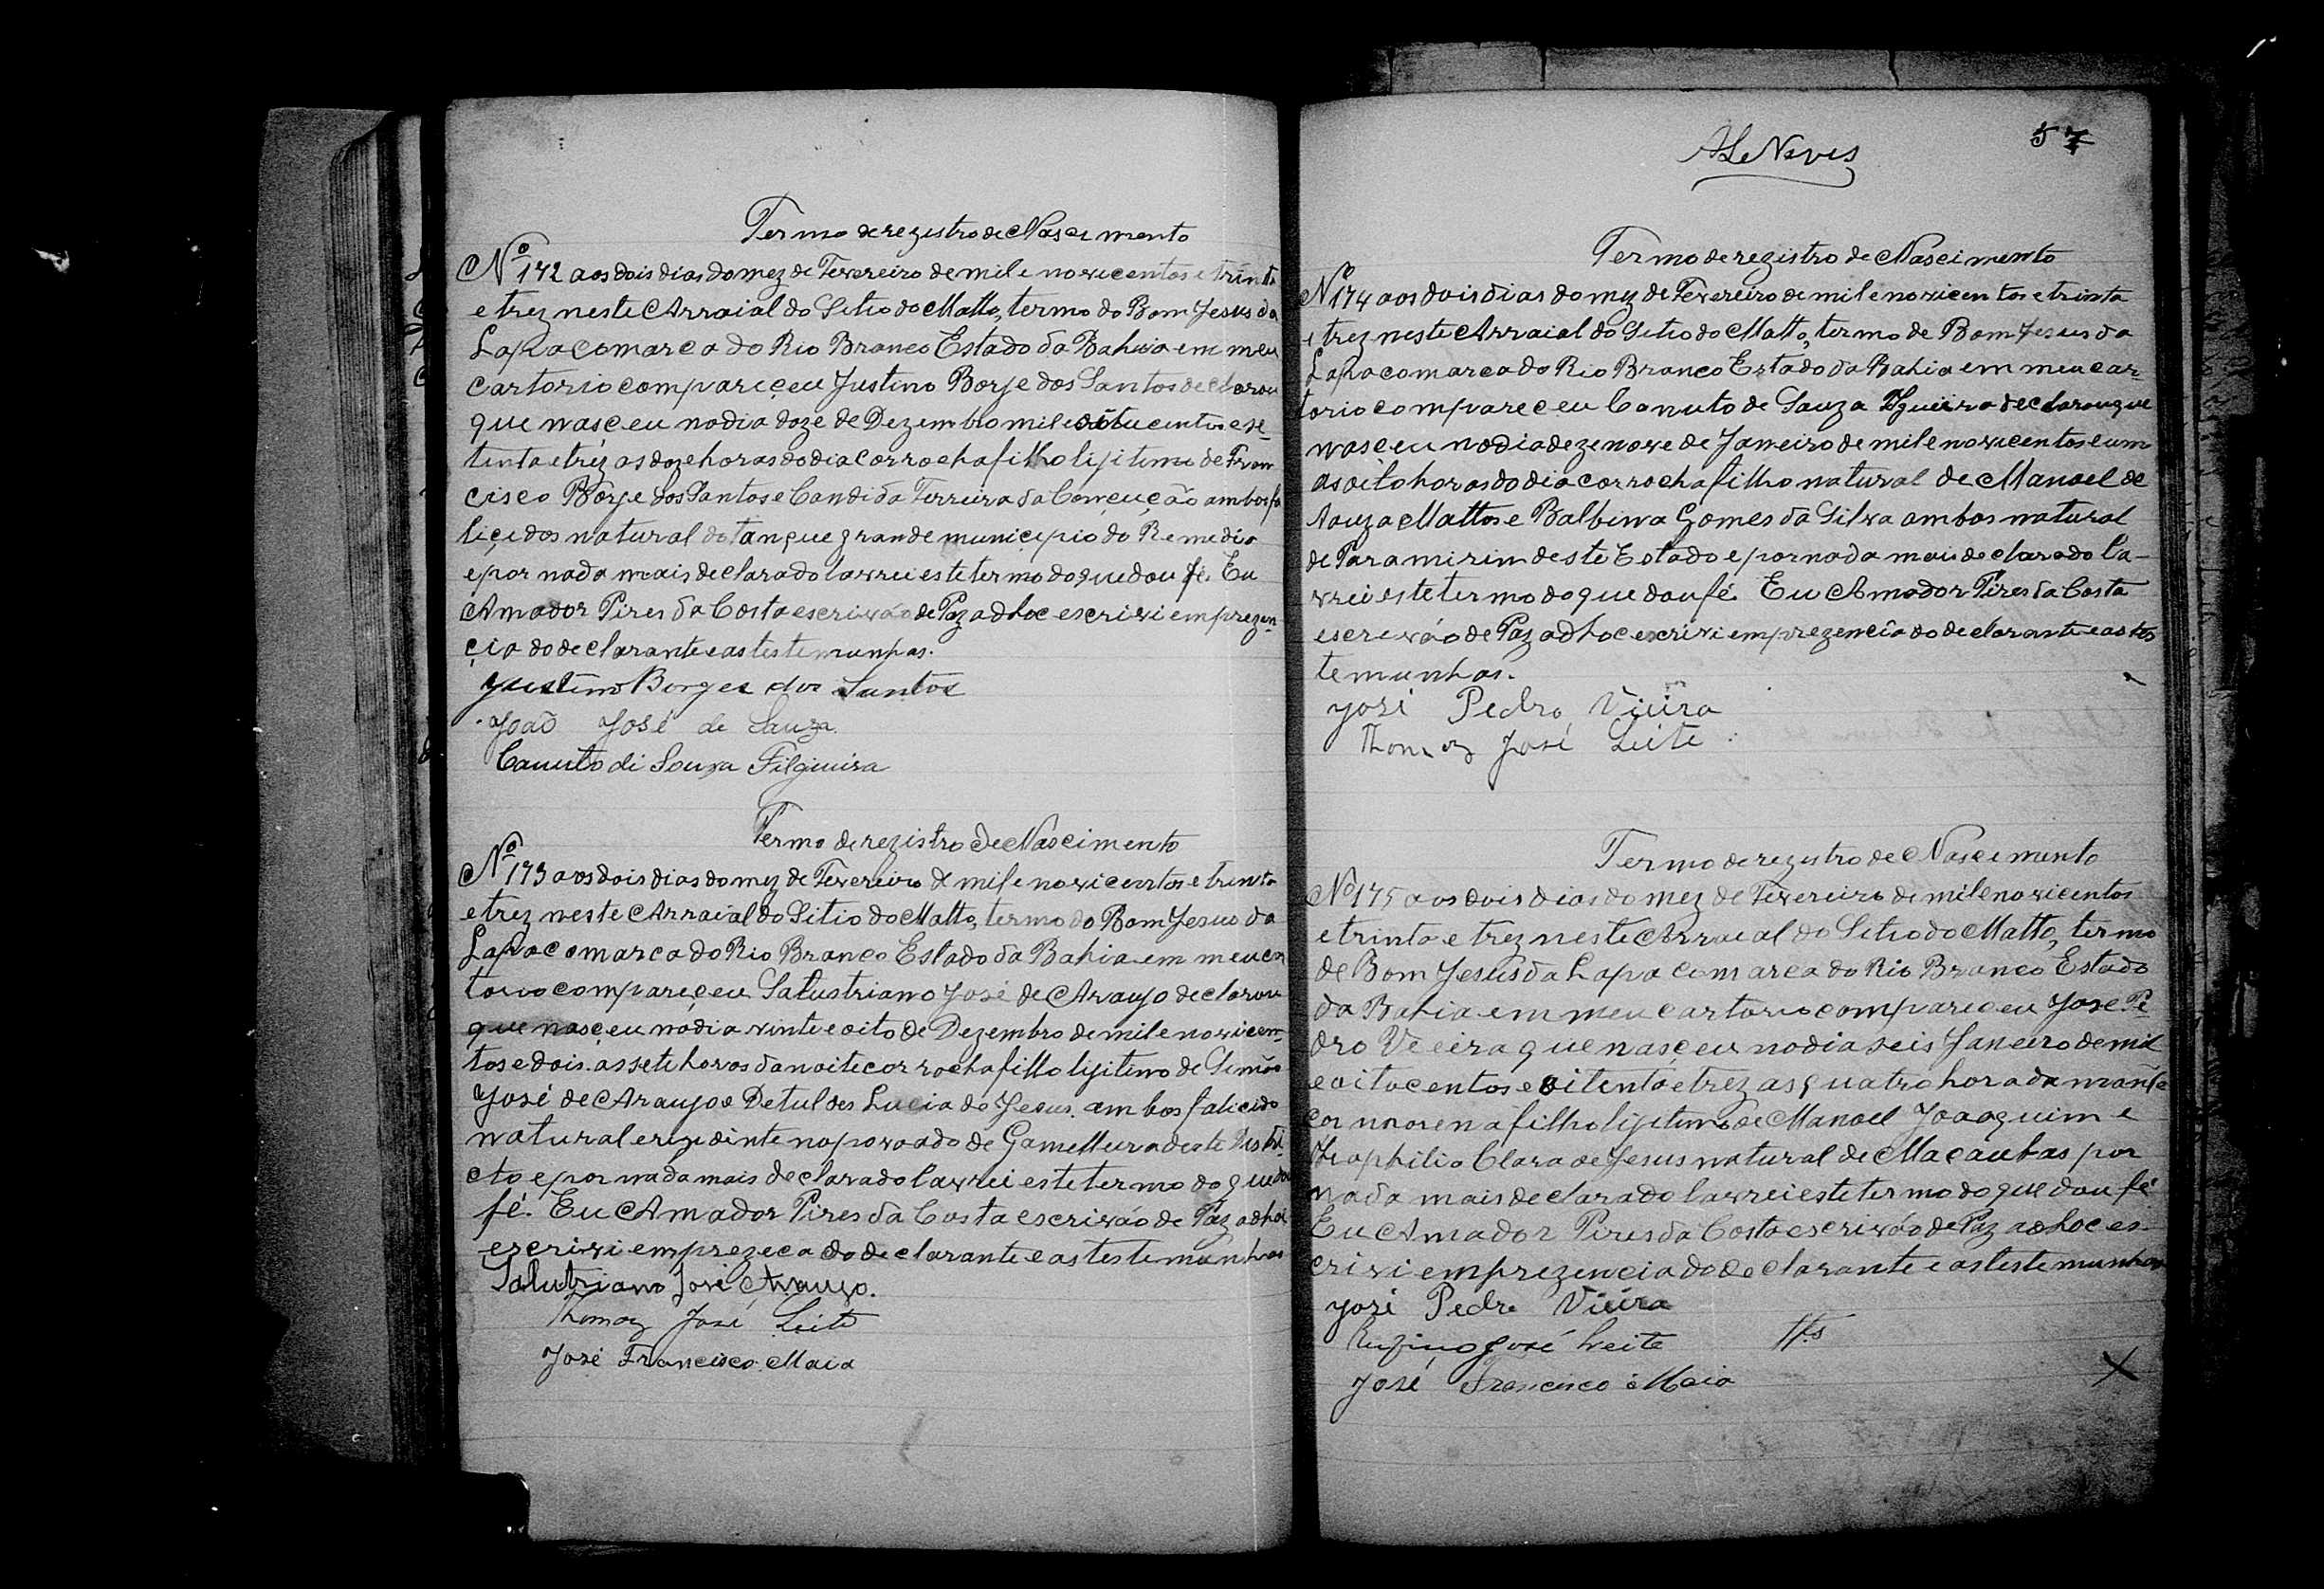 Termo de registro de Nascimento
Nº 172 aos dois dias do mez de Fevereiro de mil e novicentos e trinta
e trez neste Arraial do Sitio do Matto, termo do Bom Jesus da
Lapa comarca do Rio Branco Estado da Bahia em meu
cartorio compariçeu Justino Borje dos Santos declarou
que nasçeu no dia doze de Dezembro mil e oitucentos e se-
tenta e trêz as doze horas do dia cor rocha filho lijitimo de Fran
cisco Borje dos Santos e Candida Ferreira da Conçeução ambos fa
liçidos natural do tanque grande municipio do Remedio
e por nada mais declarado lavrei este termo do que dou fé. Eu
Amador Pires da Costa escrivão de Paz adhoc escrivi em prezen-
çia do declarante e as testemunhas.
Justino Borges dos Santos
João José de Sauza
Canuto di Souza Filgueira
Termo de registro de Nascimento
Nº 173 aos dois dias do mez de Fevereiro de mil e novicentos e trinta
e trez neste Arraial do Sitio do Matto, termo do Bom Jesus da
Lapa comarca do Rio Branco Estado da Bahia em meu car
torio compariçeu Salustriano José de Araujo declarou
que nasçeu no dia vinte e oito de Dezembro de mil e novicen-
tos e dois as sete horas da noite cor rocha filho lijitimo de Simão
José de Araujo e Detuldes Lucia de Jesus ambos falicido
natural e rezidinte no povoado de Gamelleira deste Distri-
cto e por nada mais declarado lavrei este termo do que dou
fé. Eu Amador Pires da Costa escrivão de Paz adhoc
escrivi em prezeca do declarante e as testemunhas
Salutriano José Araujo.
Thomaz José Leite
José Francisco Maia
ALeNeves
57
Termo de registro de Nascimento
Nº 174 aos dois dias do mez de Fevereiro de mil e novicentos e trinta
e trez neste Arraial do Sitio do Matto, termo de Bom Jesus da
Lapa comarca do Rio Branco Estado da Bahia em meu car-
torio compareceu Canuto de Sauza declarou que
nasceu no dia dezenove de Janeiro de mil e novicentos e um
as oito horas do dia cor rocha filho natural de Manoel de
Sauza Mattos e Balbina Gomes da Silva ambos natural
de Paramirim deste Estado e por nada mais declarado la-
vrei este termo do que dou fé. Eu Amador Pires da Costa
escrivão de Paz adhoc escrivi em prezencia do declarante e as tes
temunhas.
José Pedro Vieira
Thomaz José Leite
Termo de registro de Nascimento
Nº 175 aos dois dias do mez de Fevereiro de mil e novicentos
e trinta e trez neste Arraial do Sitio do Matto, termo
de Bom Jesus da Lapa comarca do Rio Branco Estado
da Bahia em meu cartorio compareceu José Pe
dro Vieira que nasçeu no dia seis Janeiro de mil
e oitocentos e oitenta e trez as quatro hora da manhã
cor morena filho lijitimo de Manoel Joaoquim e
Clara de Jesus natural de Macaubas por
nada mais declarado lavrei este termo do que dou fé
Eu Amador Pires da Costa escrivão de Paz adhoc es-
crivi em prezencia do declarante e as testemunhas
José Pedro Vieira
Rufino José Leite
José Francisco Maia